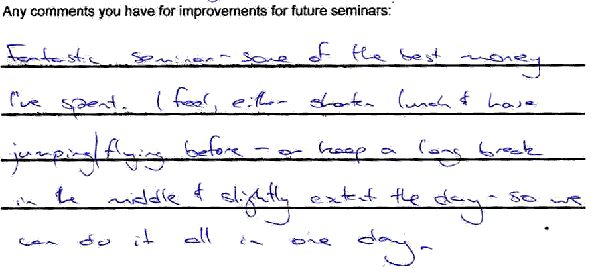 Any comments you have for improvements for future seminars:
Fantastic seminar - some of the best money
I've spent. I feel, either shorten lunch & have
jumping/flying before - or keep a long break
in the middle & slightly extent the day - so we
can do it all in one day.